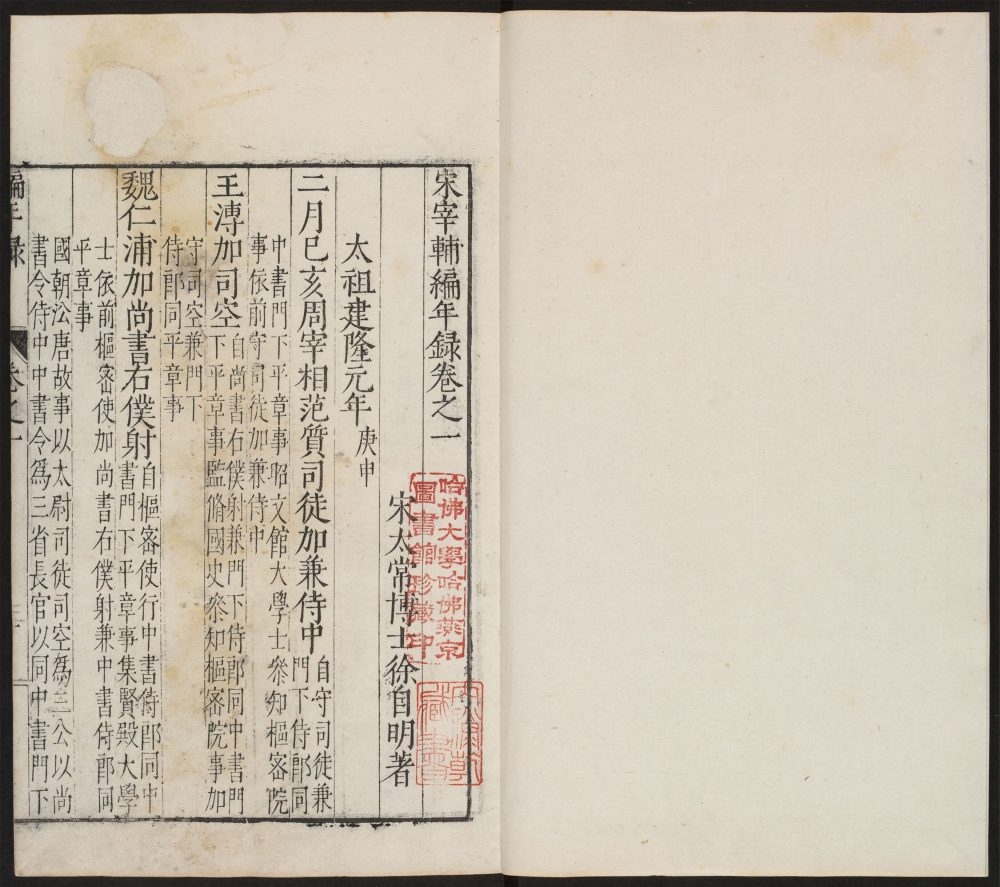 宋宰輔編年録卷之一
宋太常博士徐自明著
太祖建隆元年庚申
二月已亥周宰相范質司徒加兼侍中
自守司徒兼
門下侍郎同
中書門下平章事昭文館大學士叅知樞密院
事依前守司徒加兼侍中
王溥加司空
自尚書右僕射兼門下侍郎同中書門
下平章事監脩國史叅知樞密院事加
守司空兼門下
侍郎同平章事
魏仁浦加尚書右僕射
自樞密使行中書侍郎同中
書門下平章事集賢殿大學
士依前樞密使加尚書右僕射兼中書侍郎同
平章事
國朝㳂唐故事以太尉司徒司空為三公以尚
書令侍中中書令為三省長官以同中書門下
編年録
卷之一
哈佛大學哈佛燕京
圖書館珍藏印